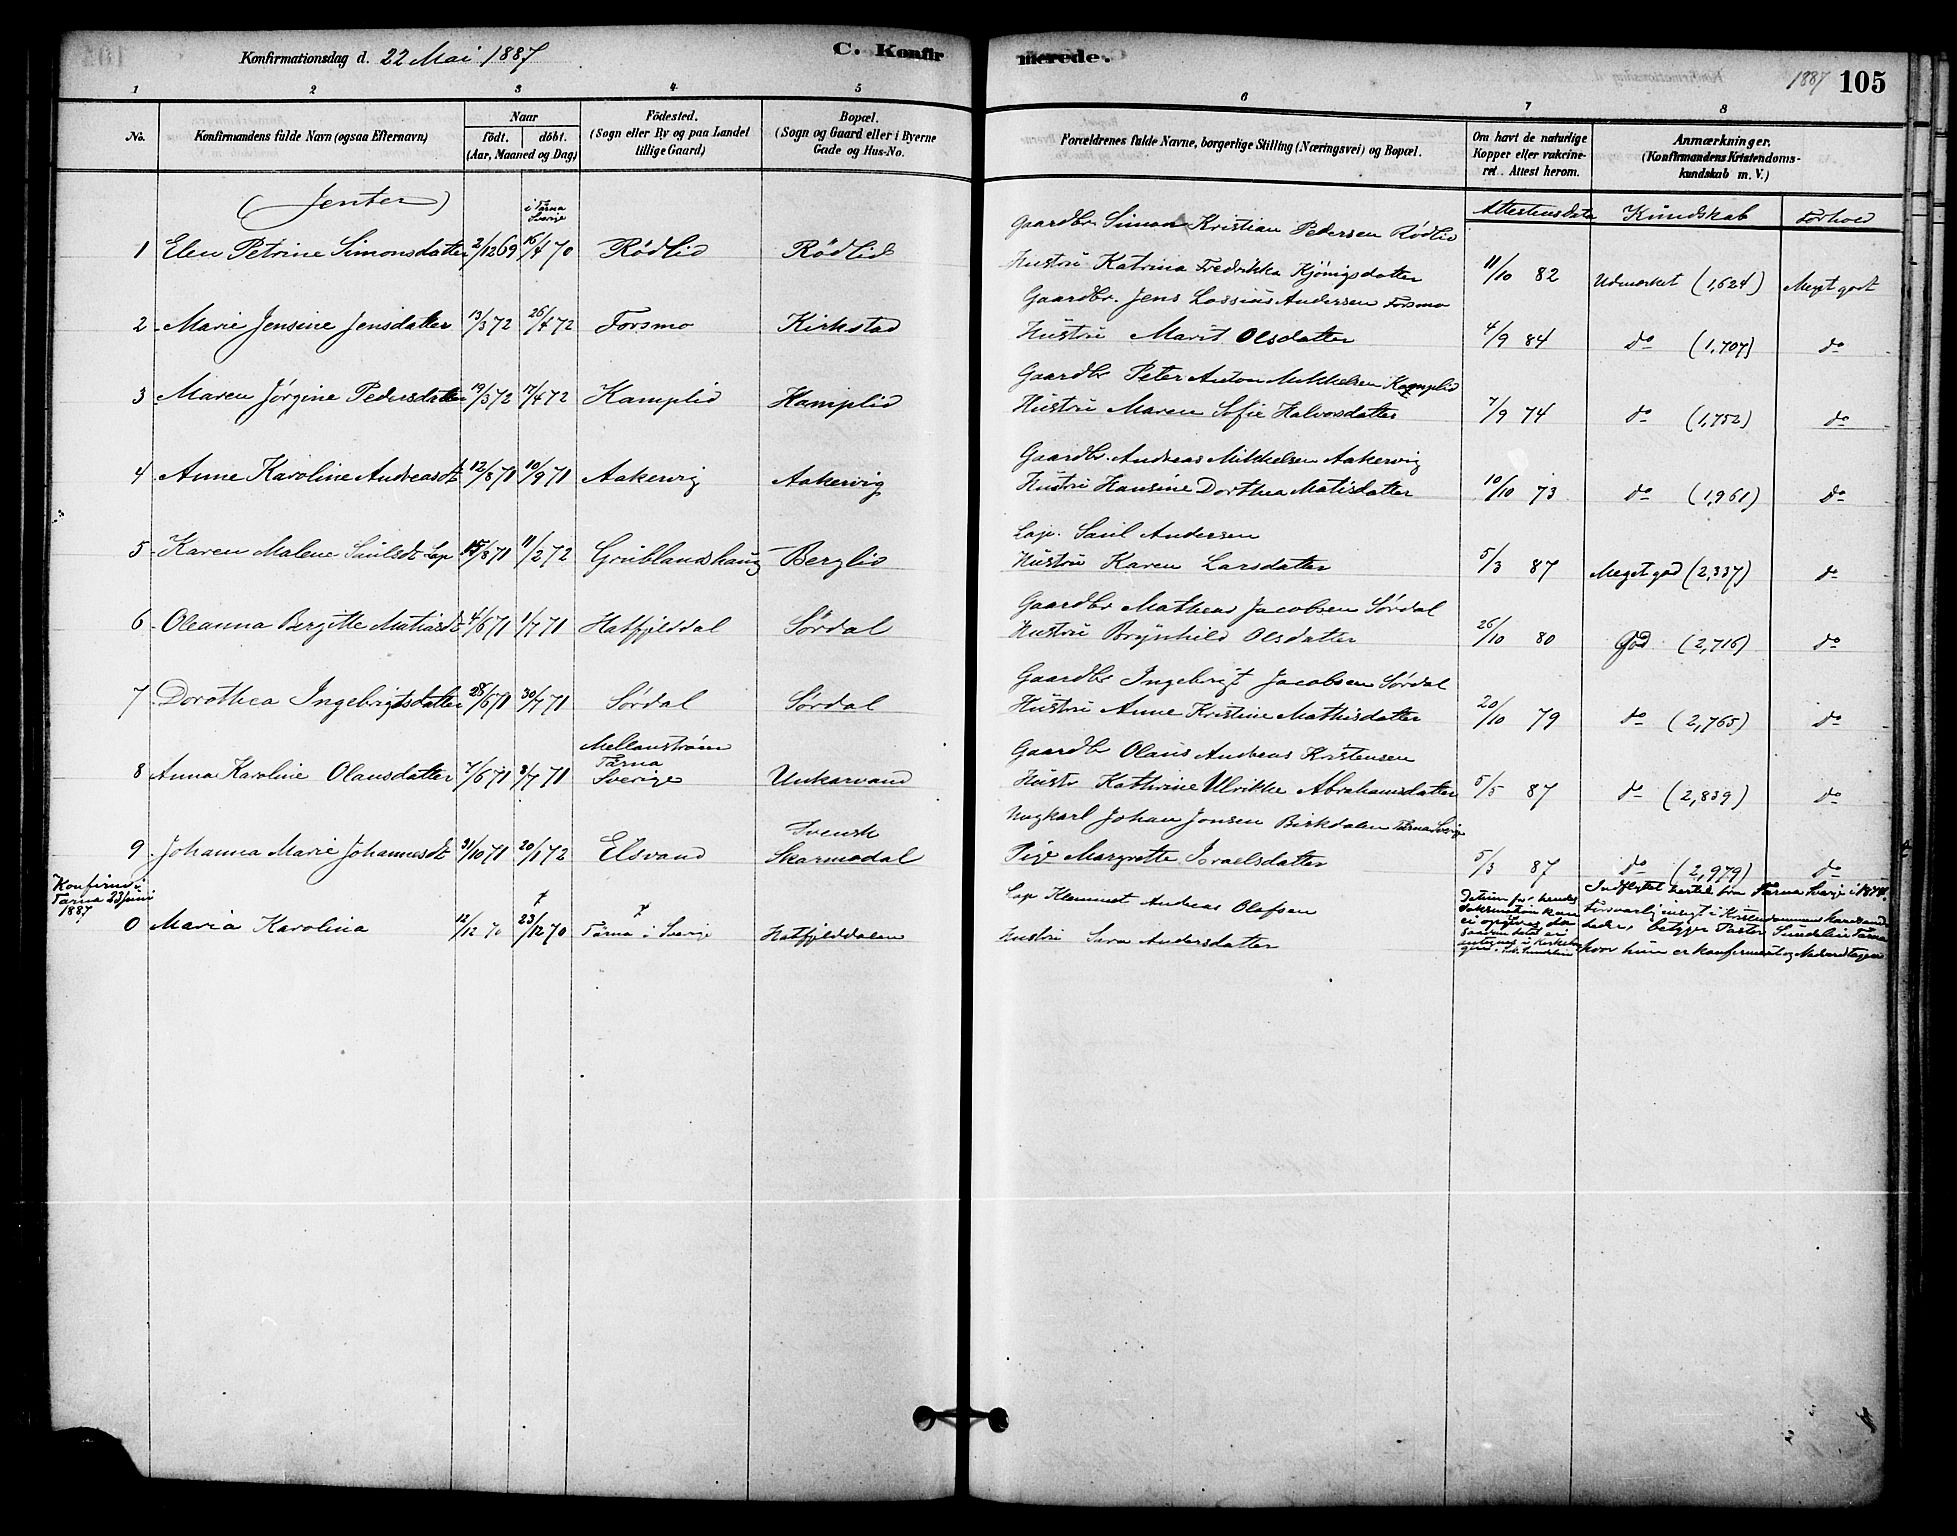 Konfirmationsdag d. 22 Mai 1887
C. Konfirmerede.
1887 105
1 2 3 4 5 6 7 8
No.
Konfirmandens fulde Navn (ogsaa Efternavn)
Naar
födt. döbt.
(Aar, Maaned og Dag)
Födested.
(Sogn eller By og paa Landet
tillige Gaard)
Bopæl.
(Sogn og Gaard eller i Byerne
Gade og Hus-No.
Forældrenes fulde Navne, borgerlige Stilling (Næringsvei) og Bopæl.
Om havt de naturlige
Kopper eller vakcine-
ret. Attest herom.
Anmærkninger.
(Konfirmandens Kristendoms-
kundskab m. V.)
(Jenter)
i Tärna
Sverige
Attestens data Kundskab Forhold
Gaardbr. Simon Kristian Pedersen Rödlid
1 Elen Petrine Simonsdatter 2/12 69 16/4 70 Rödlid Rödlid
Hustru Katrina Fredrikka Kjönigsdatter 11/10 82 Udmærket (1,624) Meget godt
Gaardbr. Jens Lassius Andersen Forsmo
2 Marie Jensine Jensdatter 13/3 72 26/4 72 Forsmo Kirkstad
Hustru Marit Olsdatter 4/9 84 do (1,707) do
Gaardbr Peter Anton Mikkelsen Kamplid
3 Maren Jörgine Pedersdatter 19/3 72 17/4 72 Kamplid Kamplid
Hustru Maren Sofie Halvorsdatter 7/9 74 do (1,752) do
Gaardbr. Andreas Mikkelsen Aakervig
4 Anne Karoline Andreasdt 12/8 71 10/9 71 Aakervig Aakervig
Hustru Hansine Dorthea Matisdatter 10/10 73 do (1,961) do
Lap. Saul Andersen
5 Karen Malene Saulsdt Lap 15/8 71 11/2 72 Grublandshaug Berglid
Hustru Karen Larsdatter 5/3 87 Meget god (2,337) do
Gaardbr Matheas Jacobsen Sördal
6 Oleanna Bergitte Matiasdt 4/6 71 1/7 71 Hatfjelddal Sördal
Hustru Brynhild Olsdatter 26/10 80 God (2,716) do
Gaardbr Ingebrigt Jacobsen Sördal
7 Dorothea Ingebrigtsdatter 28/6 71 30/7 71 Sördal Sördal
Hustru Anne Kristine Mathisdatter 20/10 79 do (2,765) do
Mellanström
Tärna
Gaardbr Olaus Andreas Kristensen
8 Anna Karoline Olausdatter 7/6 71 3/7 71 Sverige Unkarvand
Hustr Kathrine Ulrikke Abrahamsdatter 5/5 87 do (2,839) do
Ungkarl Johan Jonsen Birkdalen Tärna Sverige
Svensk
9 Johanna Marie Johannesdt 31/10 71 20/1 72 Elsvand Skarmodal
Pige Margrette Israelsdatter 5/3 87 do (2,979) do
Konfirm. i
Tärna 23 juni
1887
Lap Klemmet Andreas Olafsen
0 Maria Karolina 12/12 70 23/12 70 Tärna i Sverige Hatfjelddalen
Hustru Sara Andersdatter
Datum for hendes